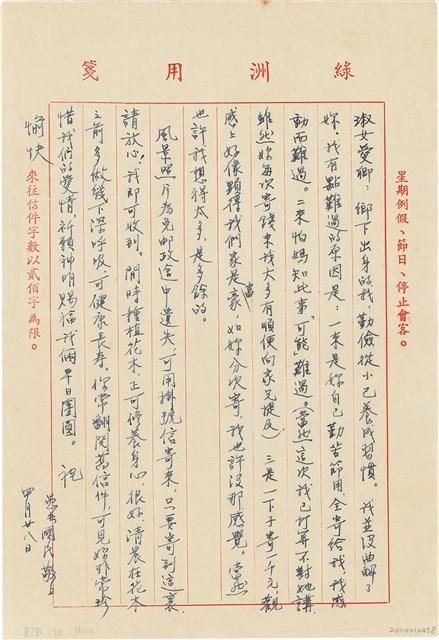 綠洲用箋
星期例假、節日、停止會客。
淑女愛卿：鄉下出身的我，勤儉從小已養成習慣。我並沒曲解了
妳，我有點難過的原因是：一來是妳自己勤苦節用，全寄給我，我感
動而難過。二來怕媽知此事，可能難過。（當然這次，我已打算不對她講，
雖然妳每次寄錢來我大多有順便向家兄提及）三是一下子寄一千元，觀
感上好像顯得我們家是富豪，如妳分次寄，我也許沒那感覺。當然
也許我想得太多，是多餘的。
風景照片為免郵政途中遺失，可用掛號信寄來，只要寄到這裏，
請放心！我即可收到。閒時種植花木，正可修養身心，很好，清晨在花木
之前多做幾下深呼吸，可健康長壽。你常翻閱舊信件，可見妳非常珍
惜我們的愛情，祈願神明賜福我倆早日團圓。祝
愉快
國民敬上
四月廿八日
來往信件字數以貳佰字為限。